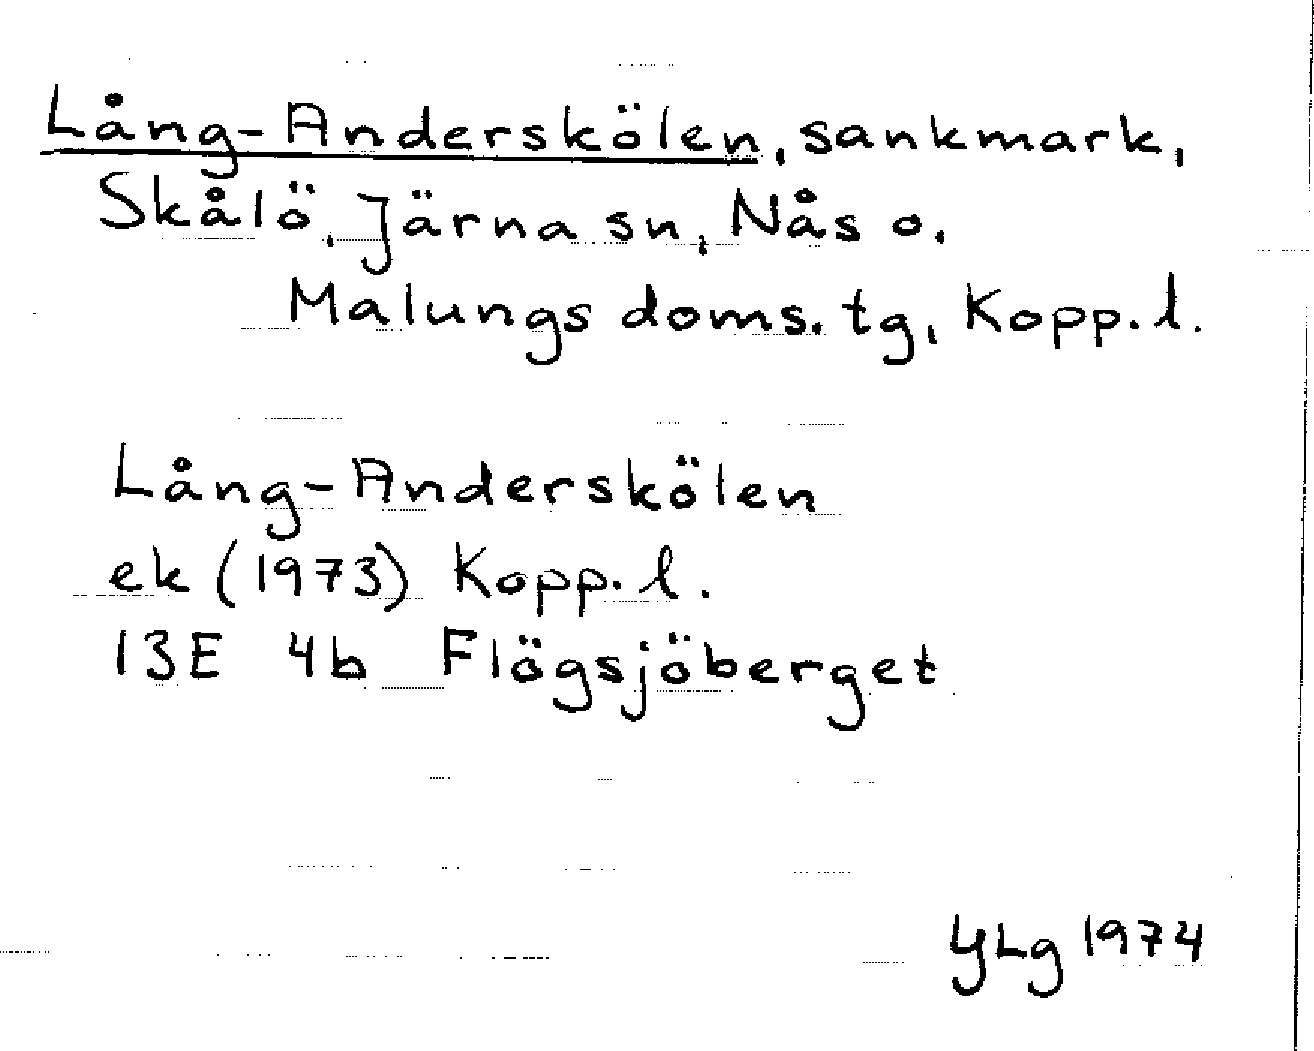 Lång-Anderskölen, sankmark,
Skålö, Järna sn, Nås o.
Malungs doms. tg, Kopp. l.
Lång-Anderskölen
ek (1973) Kopp. l.
13E 4b Flögsjöberget
YLg 1974